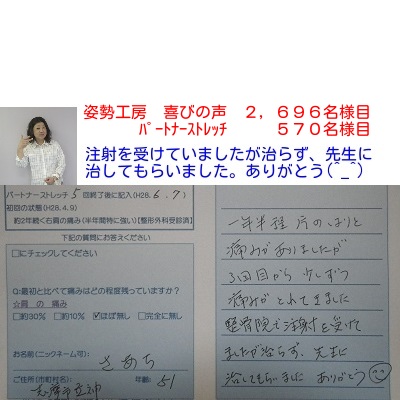 姿勢工房　喜びの声　２，６９６名様目
ﾊﾟｰﾄﾅｰｽﾄﾚｯﾁ　　５７０名様目
注射を受けていましたが治らず、先生に
治してもらいました。ありがとう(^_^)
パートナーストレッチ 5 回終了後に記入(H28. 6.7)
初回の状態(H28.4.9)
約2年続く右肩の痛み(半年間特に強い)【整形外科受診済】
下記の質問にお答えください
□にチェックしてください
Q:最初と比べて痛みはどの程度残っていますか?
☆肩の痛み
□約30% □約10% ☑ほぼ無し □完全に無し
お名前(ニックネーム可): さあち
ご住所(市町村名): 志摩市立神 年齢: 51
一年半程 肩のはりと
痛みがありましたが
3回目から 少しずつ
痛みがとれてきました
整骨院で注射を受けて
ましたが治らず、先生に
治してもらいました ありがとう